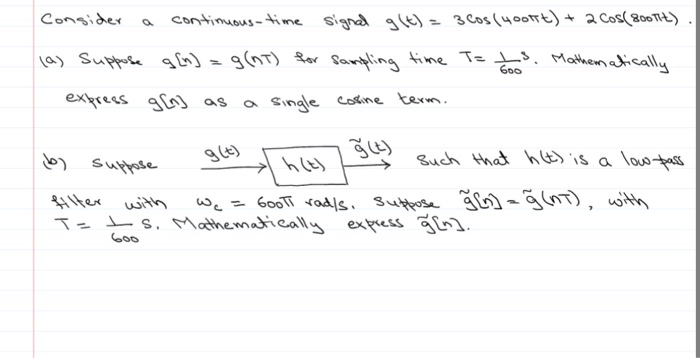 Consider a continuous-time signal g(t) = 3Cos(400πt) + 2Cos(800πt).
(a) Suppose g[n] = g(nT) for sampling time T= 1/600 s. Mathematically
express g[n] as a single cosine term.
(b) Suppose g(t) → h(t) → g̃(t) such that h(t) is a low-pass
filter with ωc = 600π rad/s. Suppose g̃[n] = g̃(nT), with
T = 1/600 s. Mathematically express g̃[n].